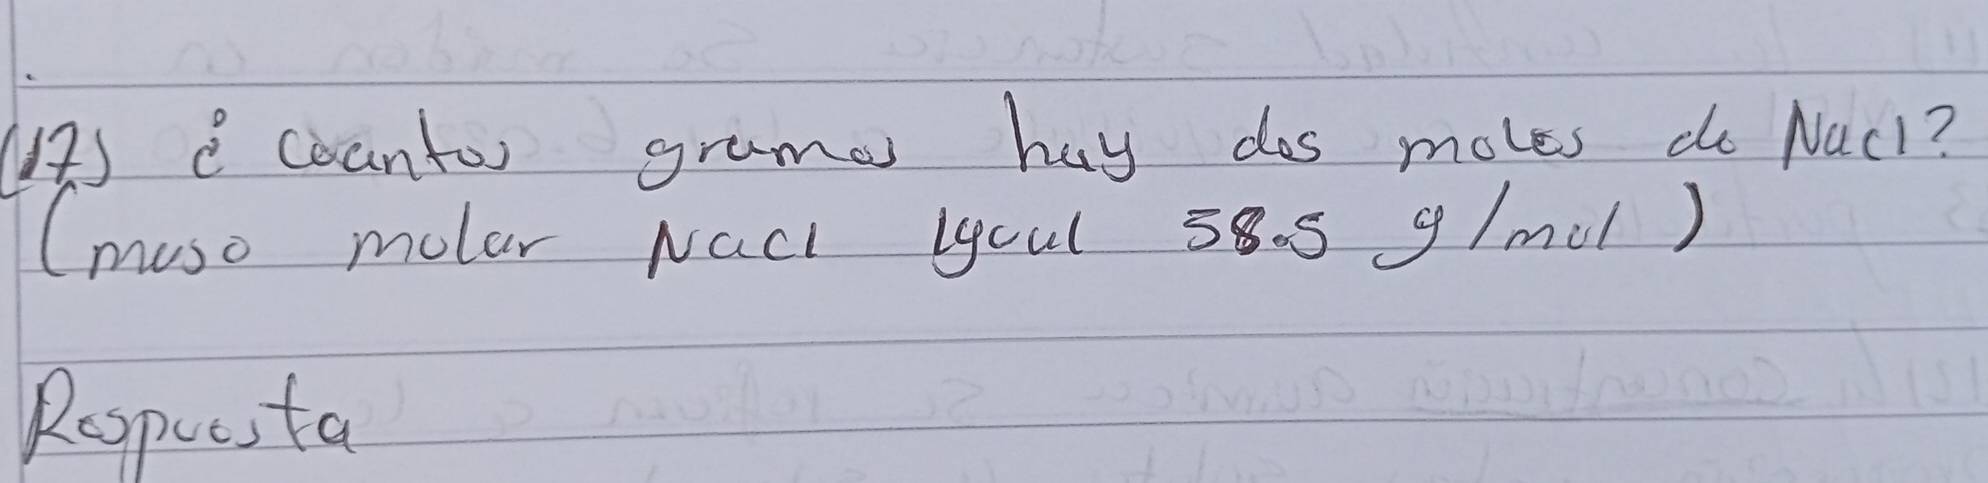 (17) ¿ cuantos gramos hay dos moles de NaCl?
(masa molar NaCl Igual 58.5 g/mol)
Respuesta